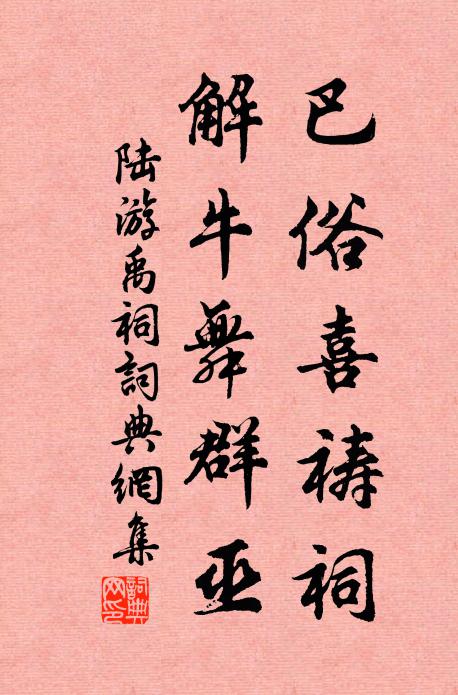 巴俗喜祷祠
解牛舞群巫
陆游禹祠詞典網集
詞典网印